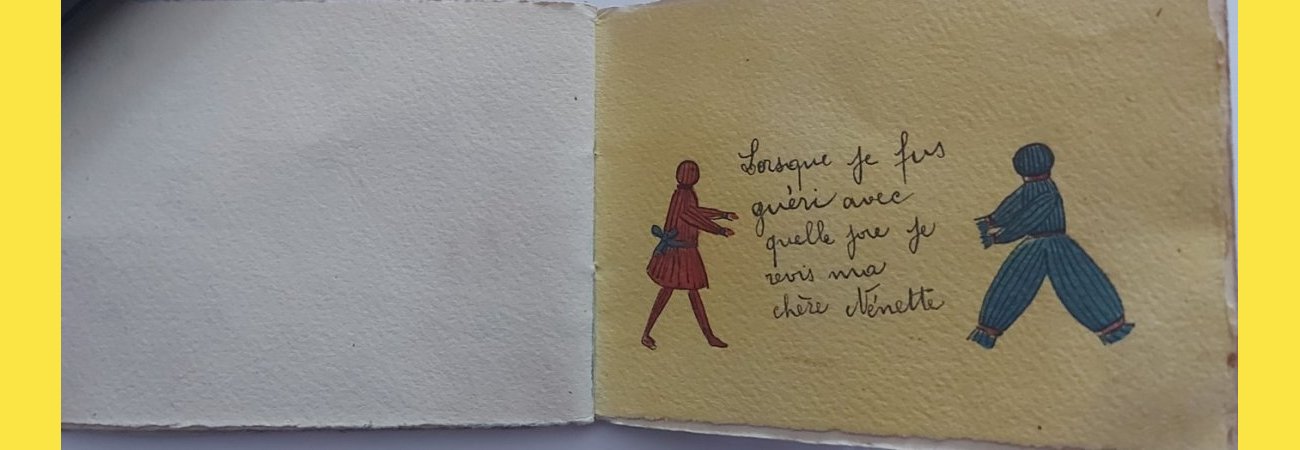 Lorsque je fus
guéri avec
quelle joie je
revis ma
chère Nénette